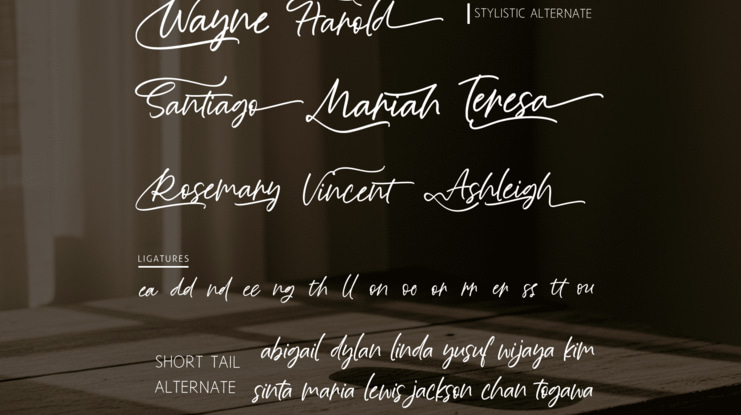 Wayne Harold STYLISTIC ALTERNATE
Santiago Mariah Teresa
Rosemary Vincent Ashleigh
LIGATURES
ea dd nd ee ng th ll on oo or rr er ss tt ou
SHORT TAIL
ALTERNATE
abigail dylan linda yusuf wijaya kim
sinta maria lewis jackson chan togawa